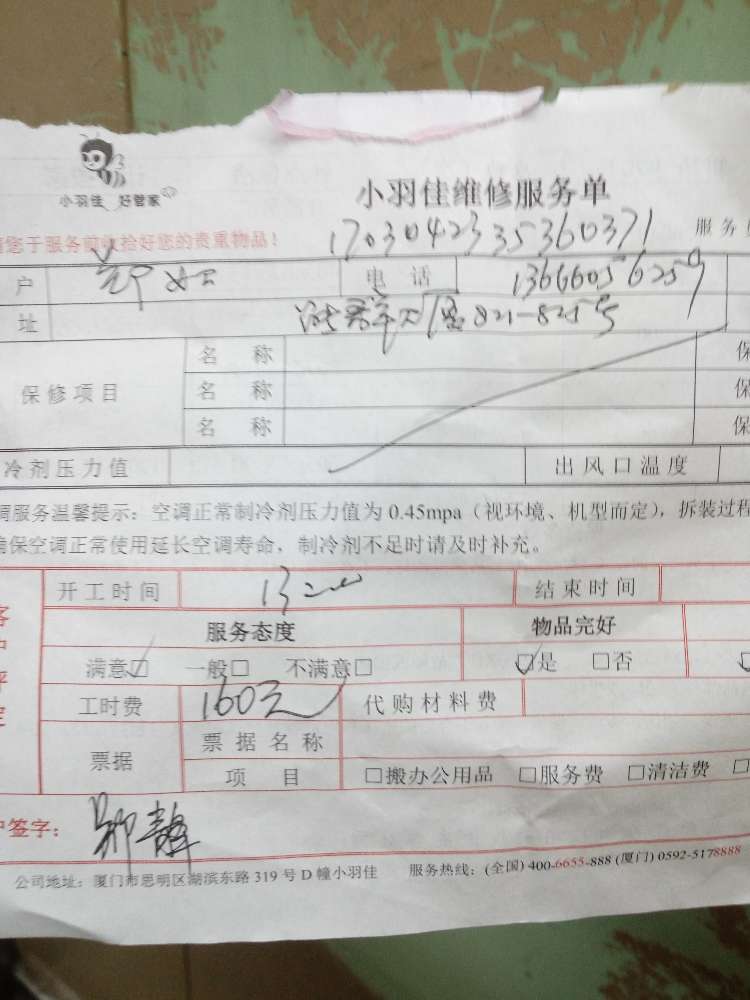 小羽佳 好管家
小羽佳维修服务单
您于服务前收捡好您的贵重物品！
1703042335360371
服务
户
郑姐
电话
13666056259
址
821-825号
保修项目
名称
保
名称
保
名称
保
冷剂压力值
出风口温度
调服务温馨提示：空调正常制冷剂压力值为 0.45mpa（视环境、机型而定），拆装过程
确保空调正常使用延长空调寿命，制冷剂不足时请及时补充。
开工时间
结束时间
服务态度
物品完好
满意☑ 一般□ 不满意□
☑是 □否
工时费
160元
代购材料费
票据
票据名称
项目
□搬办公用品 □服务费 □清洁费 □
户签字：
公司地址：厦门市思明区湖滨东路 319 号 D 幢小羽佳
服务热线：(全国) 400-6655-888 (厦门) 0592-5178888